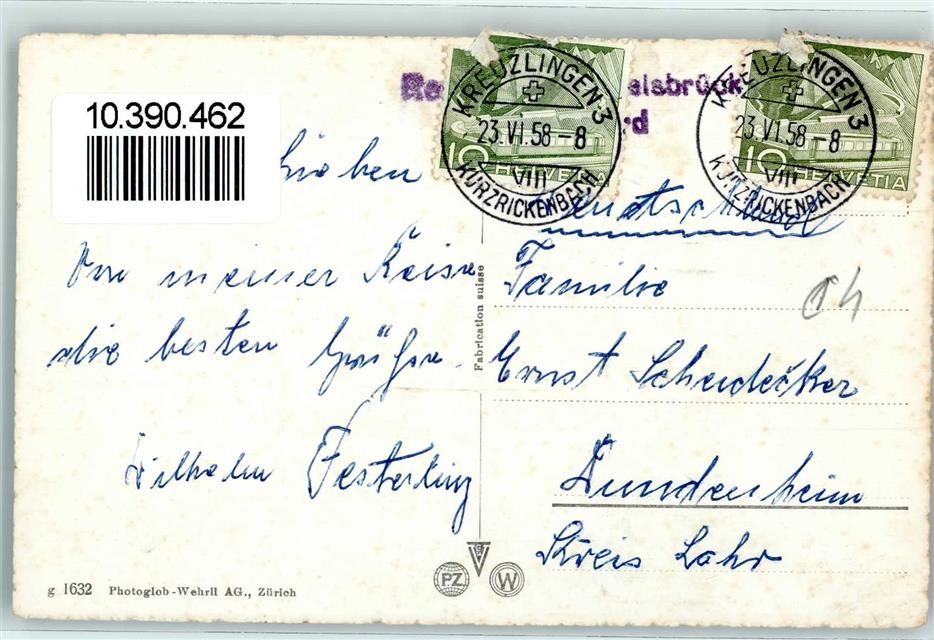 10.390.462
Lieben
Von meiner Reise
die besten Grüße.
Wilhelm Festerling
g 1632 Photoglob-Wehrli AG., Zürich
Fabrication suisse
PZ
W
KREUZLINGEN 3
23.VI.58-8
VIII
KURZRICKENBACH
10
HELVETIA
KREUZLINGEN 3
23.VI.58-8
VIII
KURZRICKENBACH
10
HELVETIA
Deutschland
Familie
Ernst Scheidecker
Dundenheim
Kreis Lahr